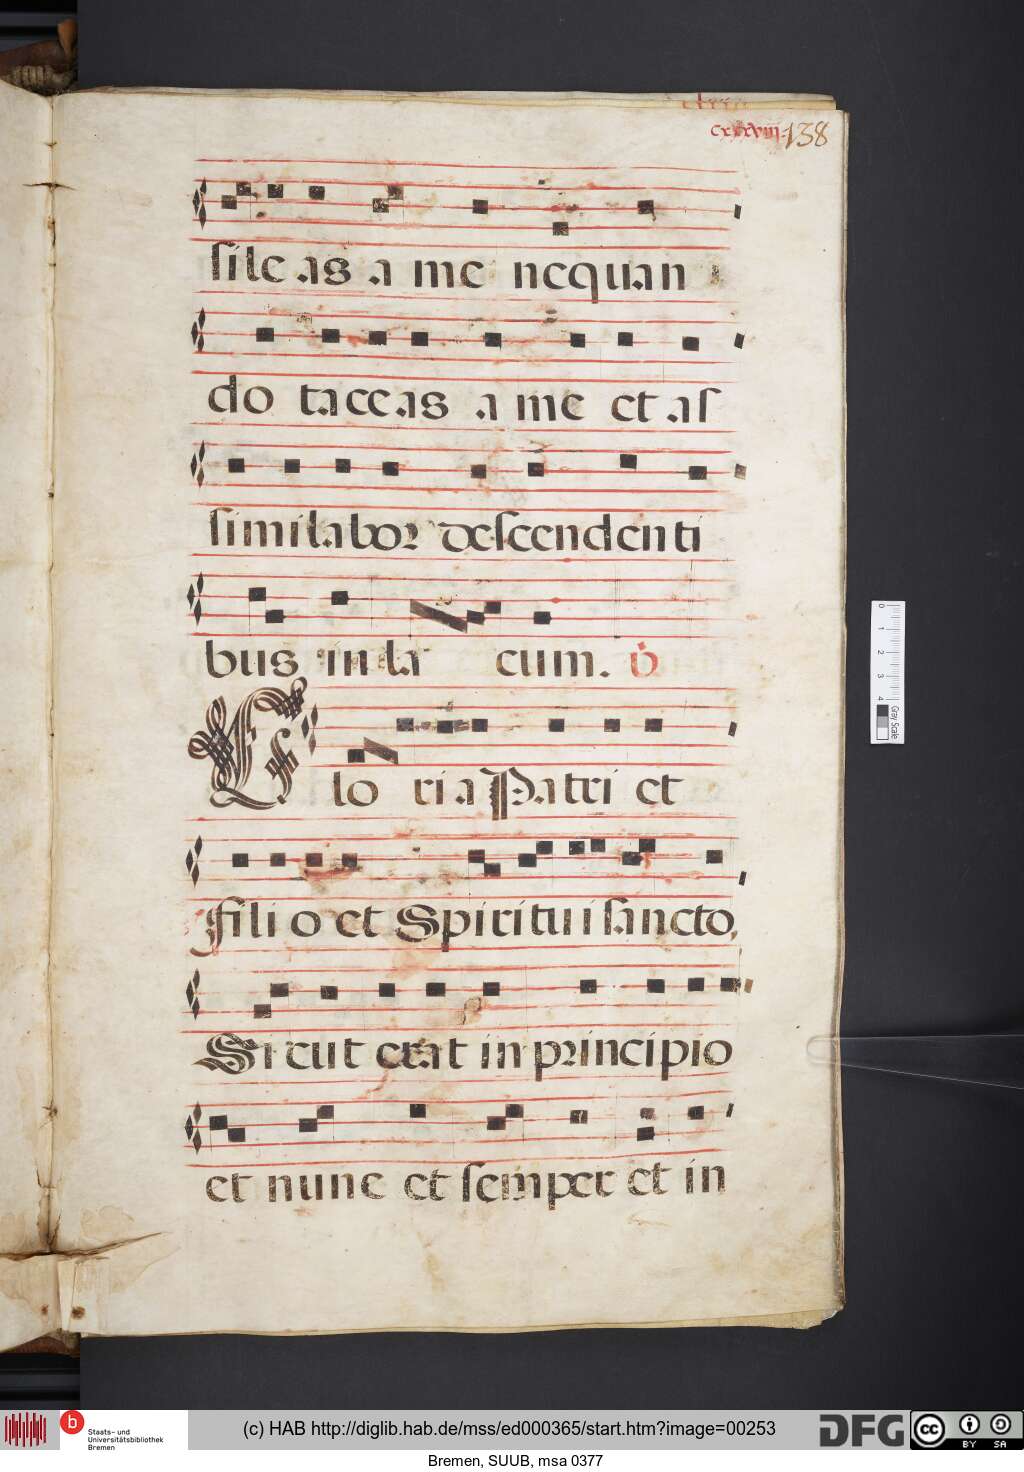 cxxxviij. 138
sile as a me nequan
do taceas a me et as
similabor descendenti
bus in la cum. V
Glo ria Patri et
filio et Spiritui sancto,
Sicut erat in principio
et nunc et semper et in
0 1 2 3 4
Gray Scale
Staats- und
Universitätsbibliothek
Bremen
(c) HAB http://diglib.hab.de/mss/ed000365/start.htm?image=00253
DFG
cc BY SA
Bremen, SUUB, msa 0377